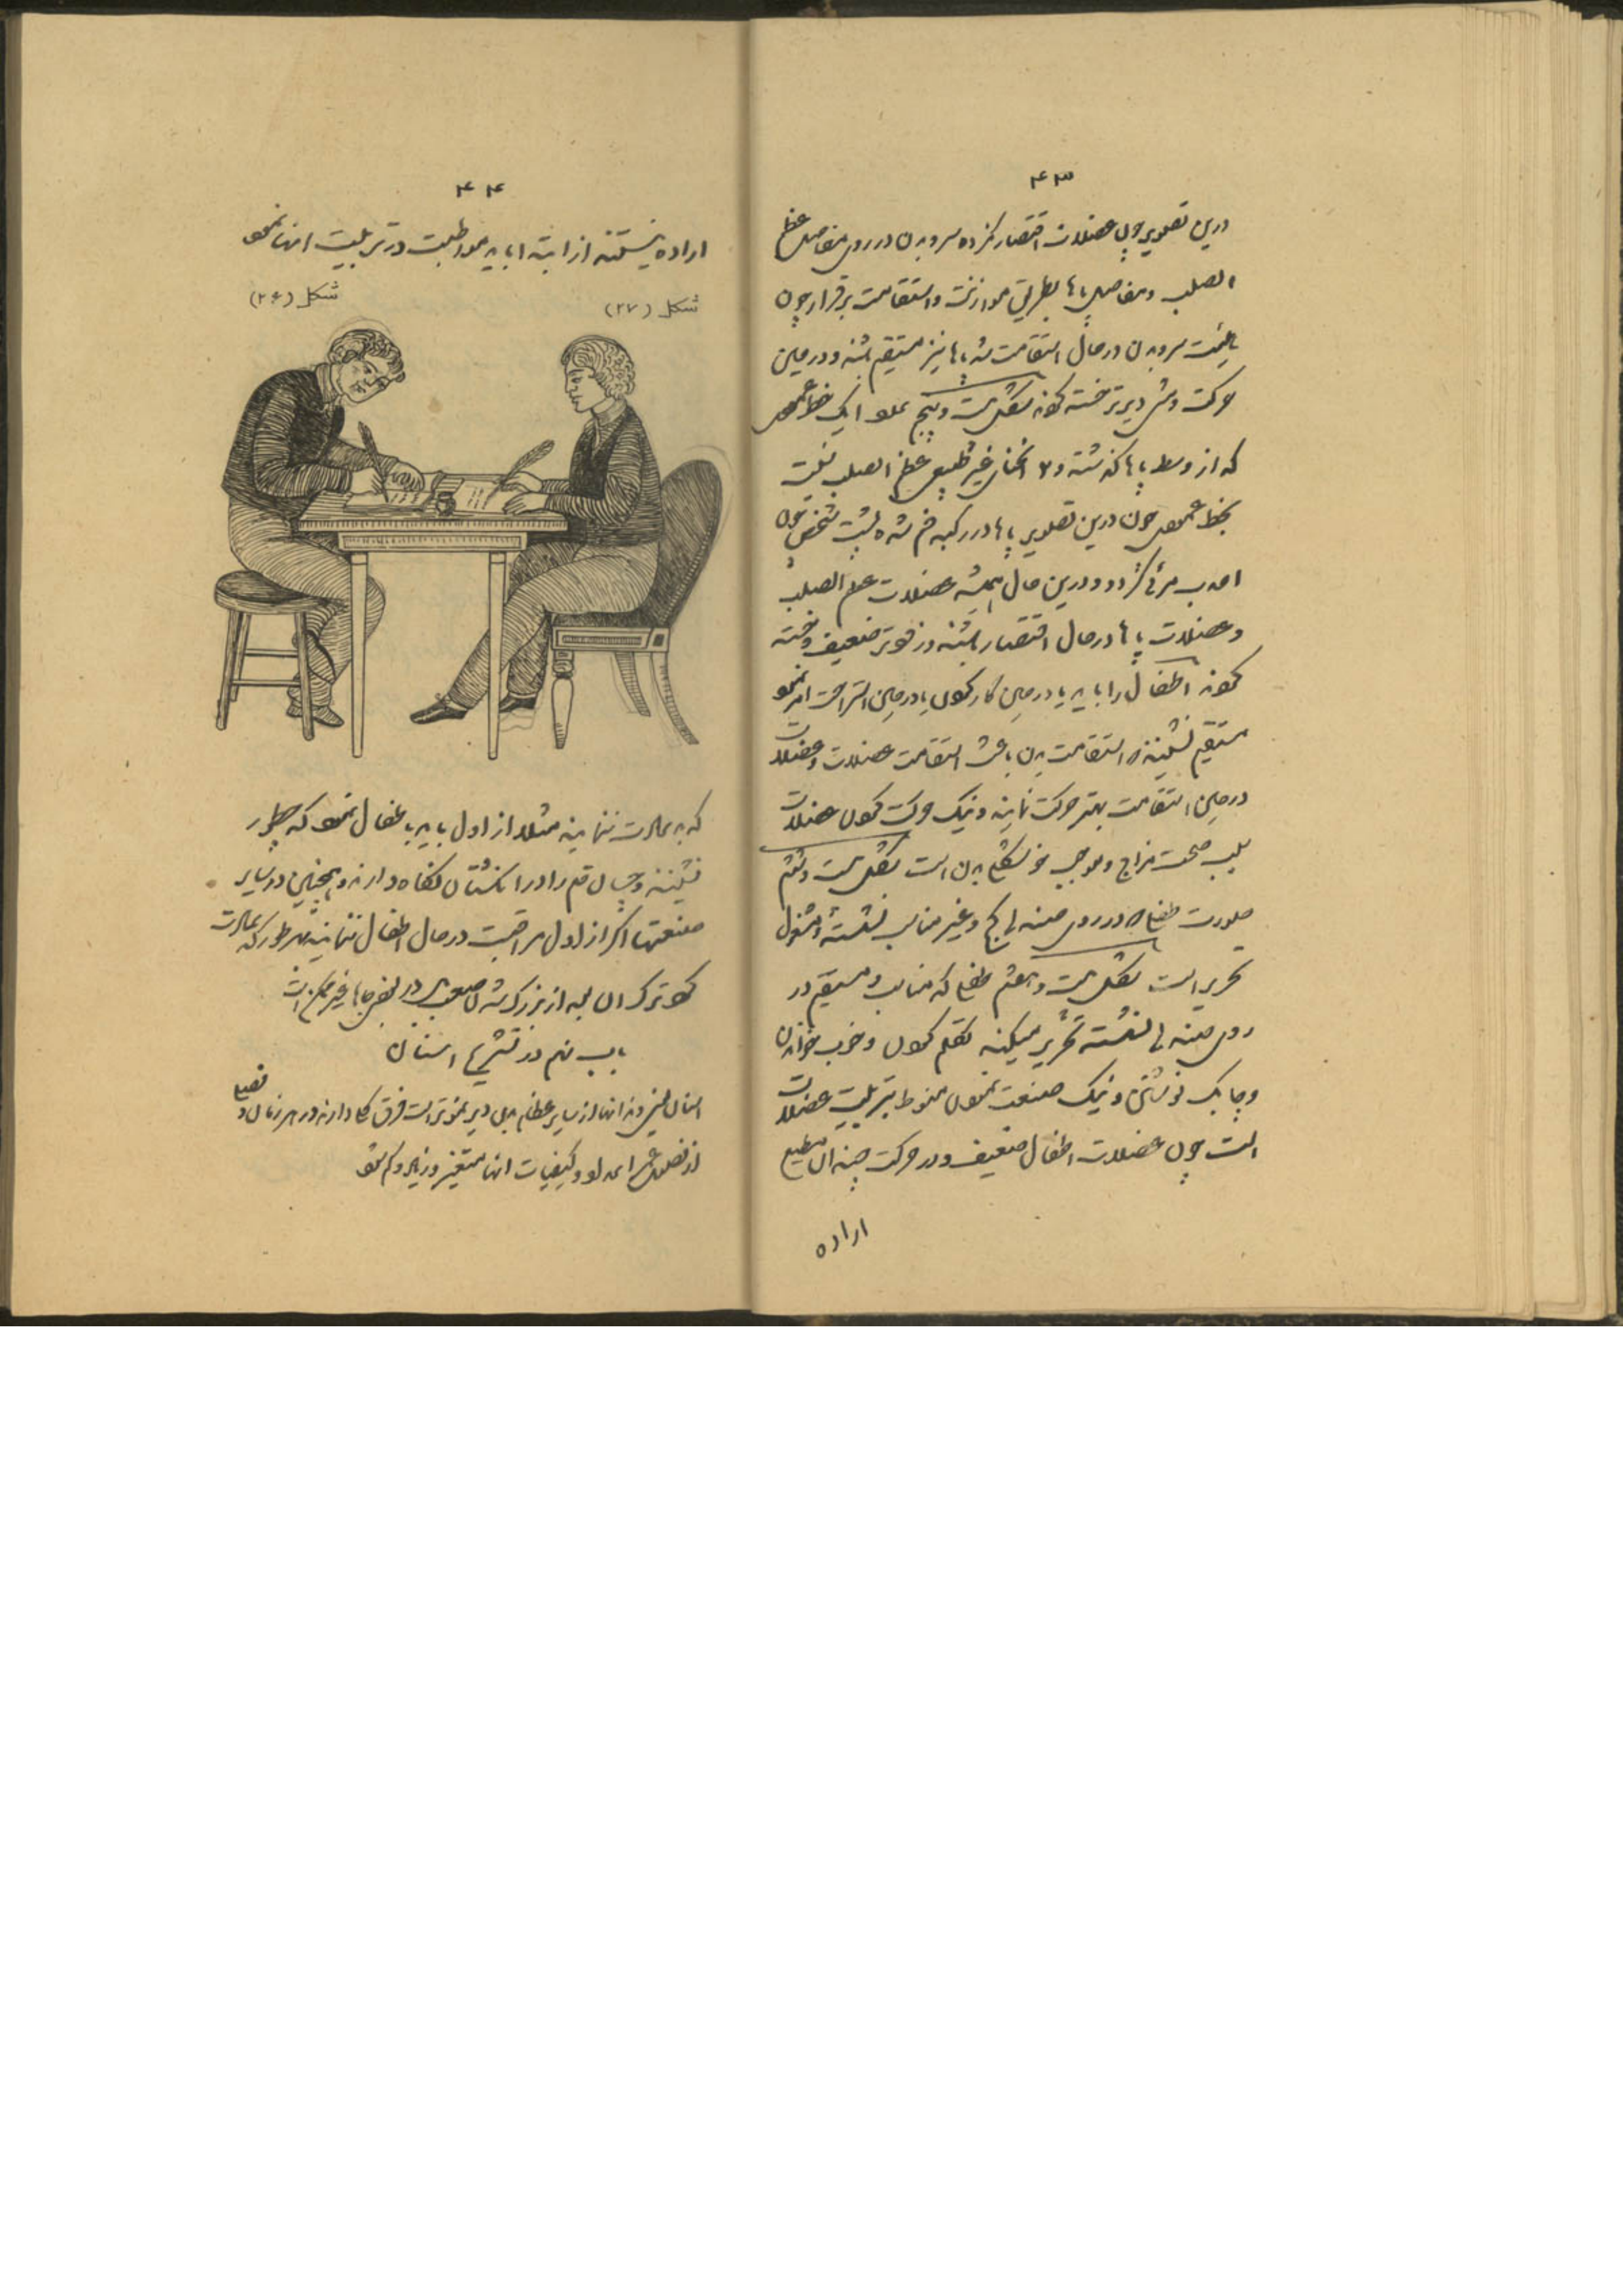 ۴۳
درین تصویر چون عضلات اقتصار کرده سر و بدن در روی مفاصل عظم
الصلب و مفاصل پاها بطریق موازنت و استقامت برقرار چون
سر و بدن در حال استقامت شد پاها نیز مستقیم باشند و در حین
حرکت دیرتر خسته گوند شکل بیست و پنج ایک خط عمود
که از وسط پاها گذشته و انحنای غیر طبیعی عظم الصلب نسبت
بخط عمود چون درین تصویر پاها در رکبه خم شده پشت شخص چون
احدب مرئی گردد و درین حال همیشه عضلات عظم الصلب
و عضلات پاها در حال اقتصار باشند و زودتر ضعیف و خسته
گوند اطفال را باید یا در حین کار کردن یا در حین استراحت امر نمود
مستقیم نشینند استقامت بدن باعث استقامت عضلات و عضلات
در حین استقامت بهتر حرکت نمایند و نیک حرکت کردن عضلات
سبب صحت مزاج و موجب خوشگلی بدن است شکل بیست و ششم
صورت طفلی در روی صندلی کج و غیر مناسب نشسته و مشغول
تحریر است شکل بیست و هفتم طفلی که مناسب و مستقیم در
روی صندلی نشسته تحریر میکند تکلم کردن و خوب خواندن
و چابک نوشتن و نیک صنعت نمودن منوط بتربیت عضلات
است چون عضلات اطفال ضعیف و در حرکت چندان مطیع
اراده
۴۴
اراده نیستند از ابتدا باید مواظبت در تربیت آنها نمود
شکل (۲۷)
شکل (۲۶)
که بد عادت ننمایند مثلا از اول باید باطفال نمود که چطور
نشینند و چسان قلم را در انگشتان نگاه دارند و همچنین در سایر
صنعتها اگر از اول مراقبت در حال اطفال ننمایند بهر طور که عادت
کرد ترک آن بعد از بزرگ شدن صعب و در بعض جاها غیر ممکن است
باب نهم در تشریح اسنان
اسنان یعنی دندانها از سایر عظام بدن دیر نموتر است فرق کلی دارند در هر زمان و فصلی
از فصول عمر اعداد و کیفیات آنها متغیر و زیاد و کم شود